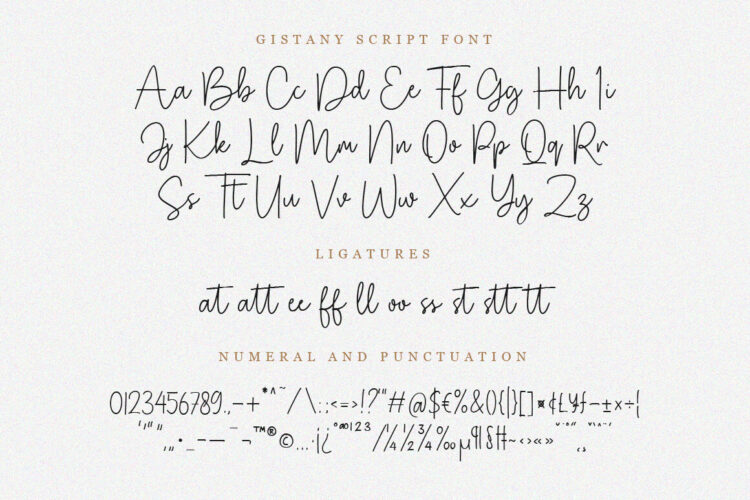 GISTANY SCRIPT FONT
Aa Bb Cc Dd Ee Ff Gg Hh Ii
Jj Kk Ll Mm Nn Oo Pp Qq Rr
Ss Tt Uu Vv Ww Xx Yy Zz
LIGATURES
at att ee ff ll oo ss st stt tt
NUMERAL AND PUNCTUATION
0123456789.,-+*^~/\:;<=>!?'"#@$€%&(){|}[]¤¢£¥ƒ−±×÷¦
‘’“”‚„•_–—¯¬™®©…·¡¿ªº⁰¹²³⁄¼½¾‰µ¶§~‹›«»